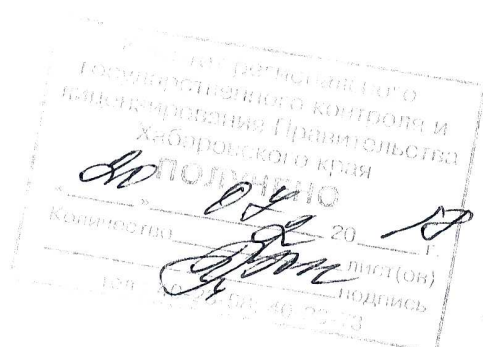 Комитет регионального
государственного контроля и
лицензирования Правительства
Хабаровского края
ПОЛУЧЕНО
« 20 » 07 20 17 г.
Количество 2 лист(ов)
подпись
тел.